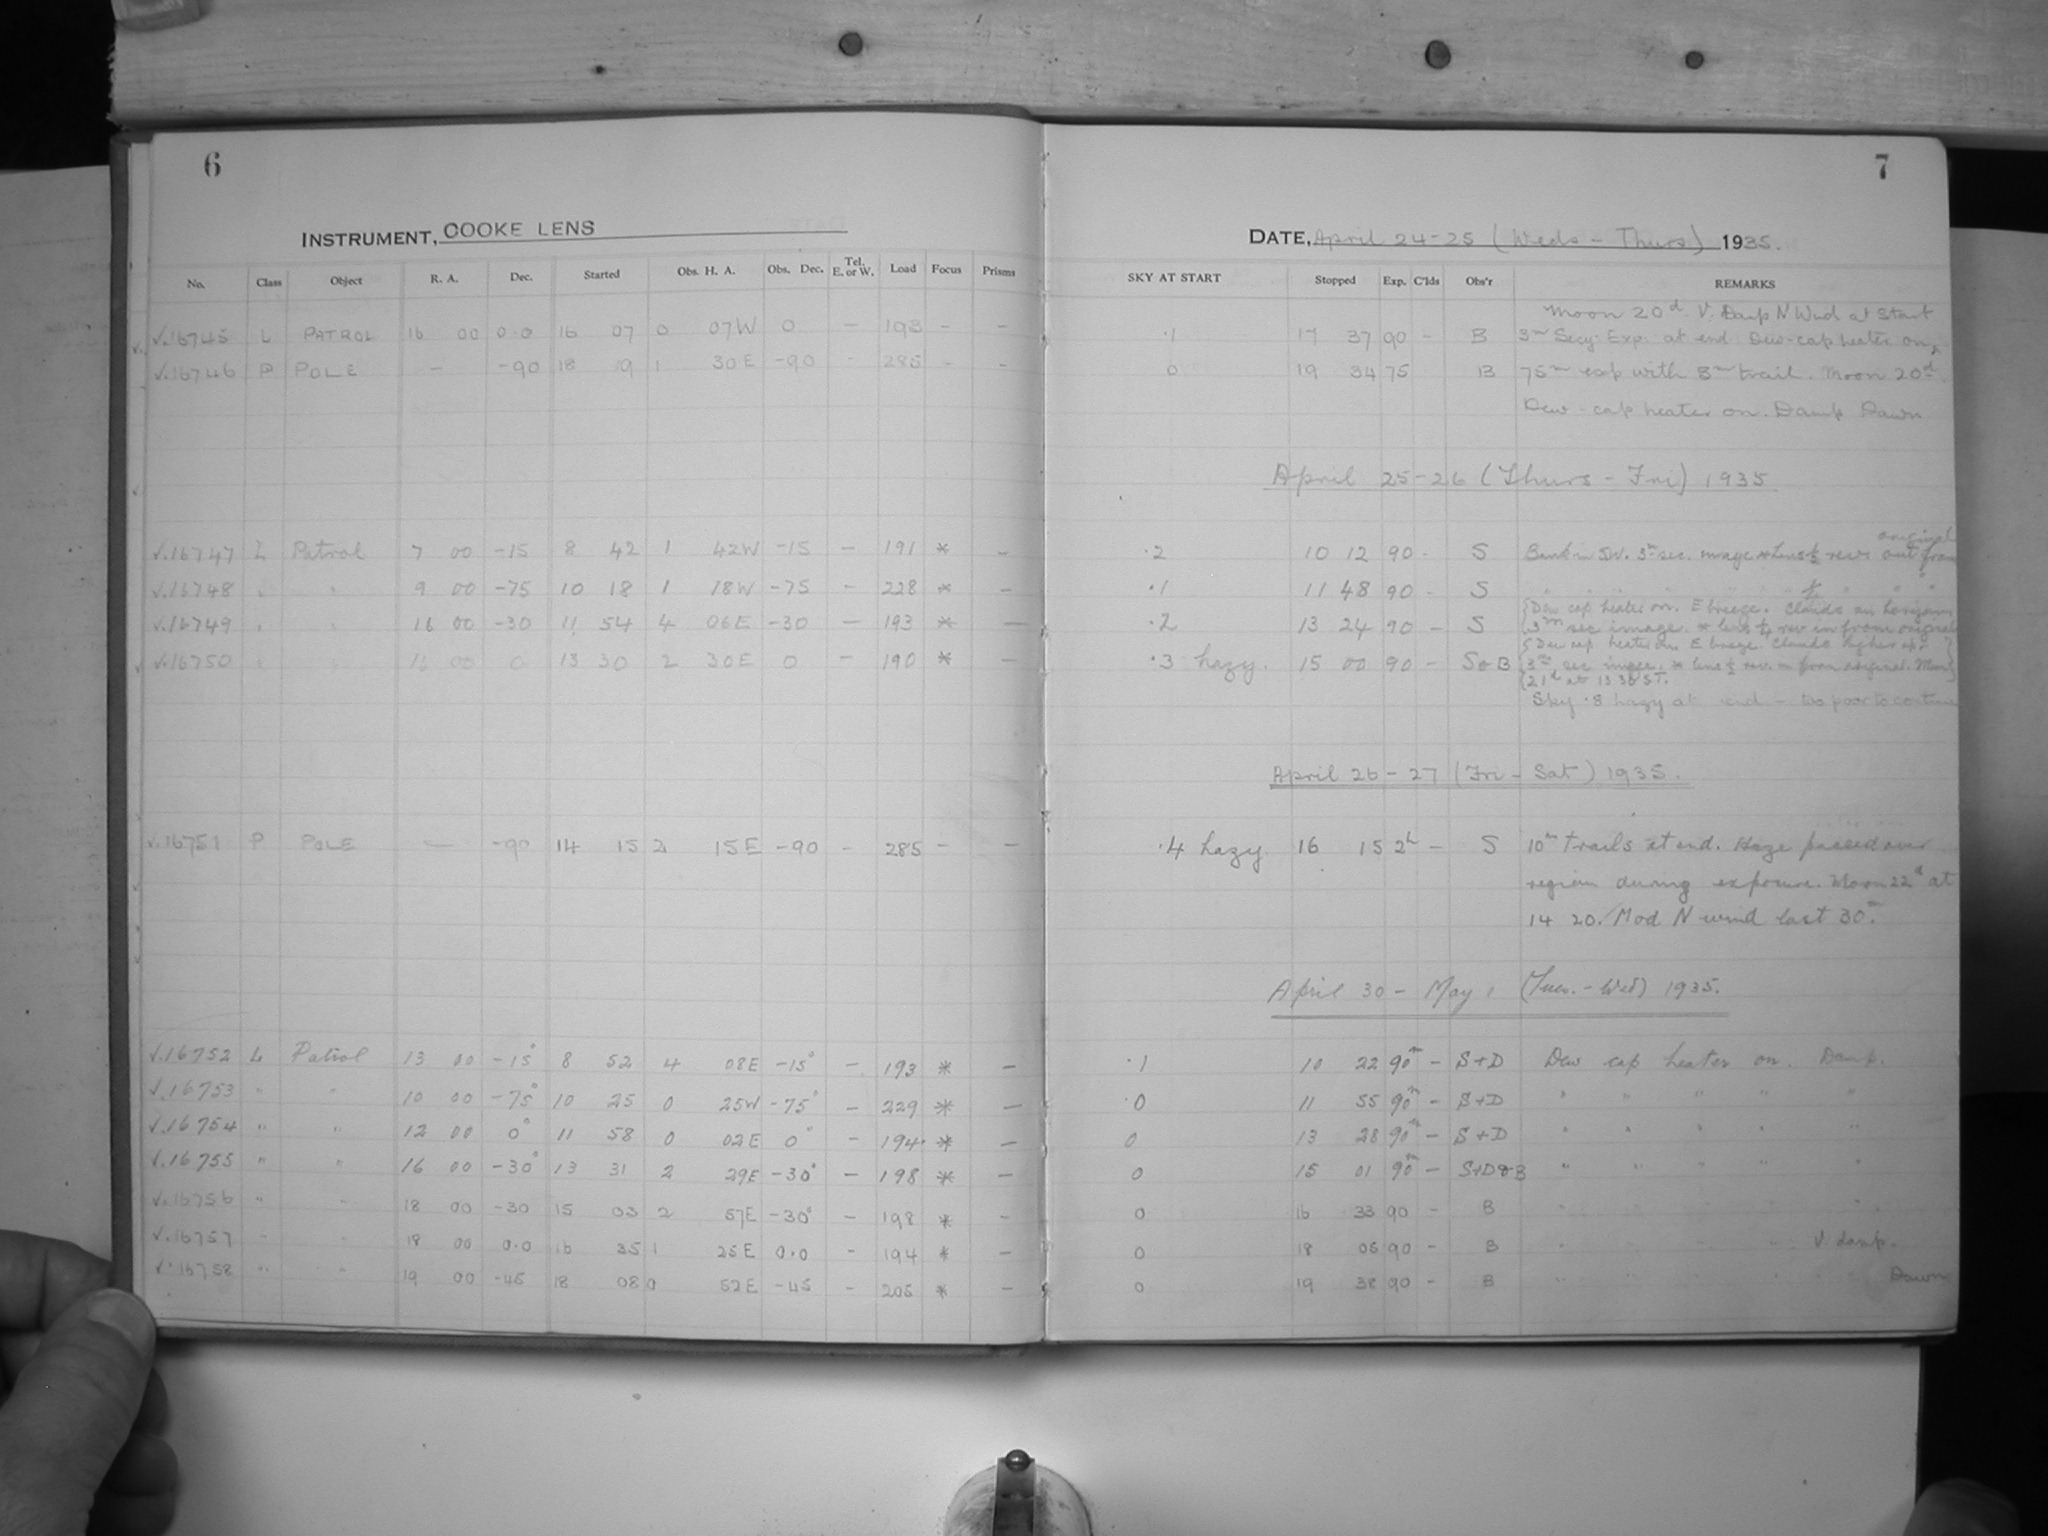 6
7
INSTRUMENT, COOKE LENS
DATE, April 24-25 (Weds - Thurs) 1935.
No. Class Object R. A. Dec. Started Obs. H. A. Obs. Dec. Tel. E. or W. Load Focus Prisms SKY AT START Stopped Exp. C'lds Obs'r REMARKS
Moon 20d. V. Damp N Wind at Start
√.16745 L PATROL 16 00 0.0 16 07 0 07W 0 — 193 - - .1 17 37 90 - B 3m Secy. Exp. at end. Dew-cap heater on
√.16746 P POLE — -90 18 19 1 30E -90 - 285 - - 0 19 34 75 B 75m exp with 3m trail. Moon 20d.
Dew-cap heater on. Damp Dawn
April 25-26 (Thurs - Fri) 1935
original
√.16747 L Patrol 7 00 -15 8 42 1 42W -15 — 191 * - .2 10 12 90 - S Bank in SW. 3m sec. image * lens ½ rev. out from
√.16748 " " 9 00 -75 10 18 1 18W -75 - 228 * - .1 11 48 90 - S " " " " " ¼ " " "
{Dew cap heater on. E breeze. Clouds on horizon
√.16749 " " 16 00 -30 11 54 4 06E -30 - 193 * — .2 13 24 90 - S {3m sec image. * lens ¼ rev in from original
{Dew cap heater on. E breeze. Clouds higher up}
√.16750 " " 16 00 0 13 30 2 30E 0 — 190 * - .3 hazy. 15 00 90 - S&B {3m sec image. * lens ½ rev. in from original. Moon}
{21d at 13 30 ST.
Sky .8 hazy at end - too poor to continue
April 26-27 (Fri - Sat) 1935.
√.16751 P POLE — -90 14 15 2 15E -90 - 285 - - .4 hazy 16 15 2h - S 10m trails at end. Haze passed over
region during exposure. Moon 22d at
14 20. Mod N wind last 30m.
April 30 - May 1 (Tues. - Wed) 1935.
√.16752 L Patrol 13 00 -15° 8 52 4 08E -15° - 193 * - .1 10 22 90m - S+D Dew cap heater on. Damp.
√.16753 " " 10 00 -75° 10 25 0 25W -75° - 229 * - 0 11 55 90m - S+D " " " " "
√.16754 " " 12 00 0° 11 58 0 02E 0° - 194 * - 0 13 28 90m - S+D " " " " "
√.16755 " " 16 00 -30° 13 31 2 29E -30° - 198 * - 0 15 01 90m - S+D&B " " " " "
√.16756 " " 18 00 -30 15 03 2 57E -30° - 198 * - 0 16 33 90 - B " " " " "
√.16757 " " 18 00 0.0 16 35 1 25E 0.0 - 194 * - 0 18 05 90 - B " " " " V. damp.
√.16758 " " 19 00 -45 18 08 0 52E -45 - 205 * - 0 19 38 90 - B " " " " " Dawn